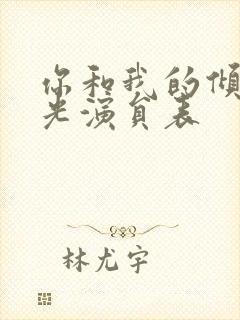 你和我的倾
光演员表
林尤宇